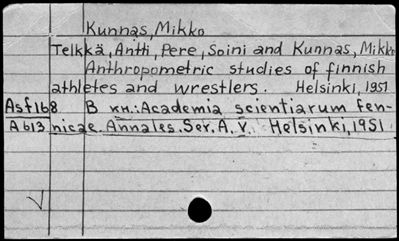 Kunnas, Mikko
Telkkä, Antti, Pere, Soini and Kunnas, Mikko
Anthropometric studies of finnish
athletes and wrestlers. Helsinki, 1951
Asf168 В кн.: Academia scientiarum fen-
A613 nicae. Annales. Ser. A. V. Helsinki, 1951